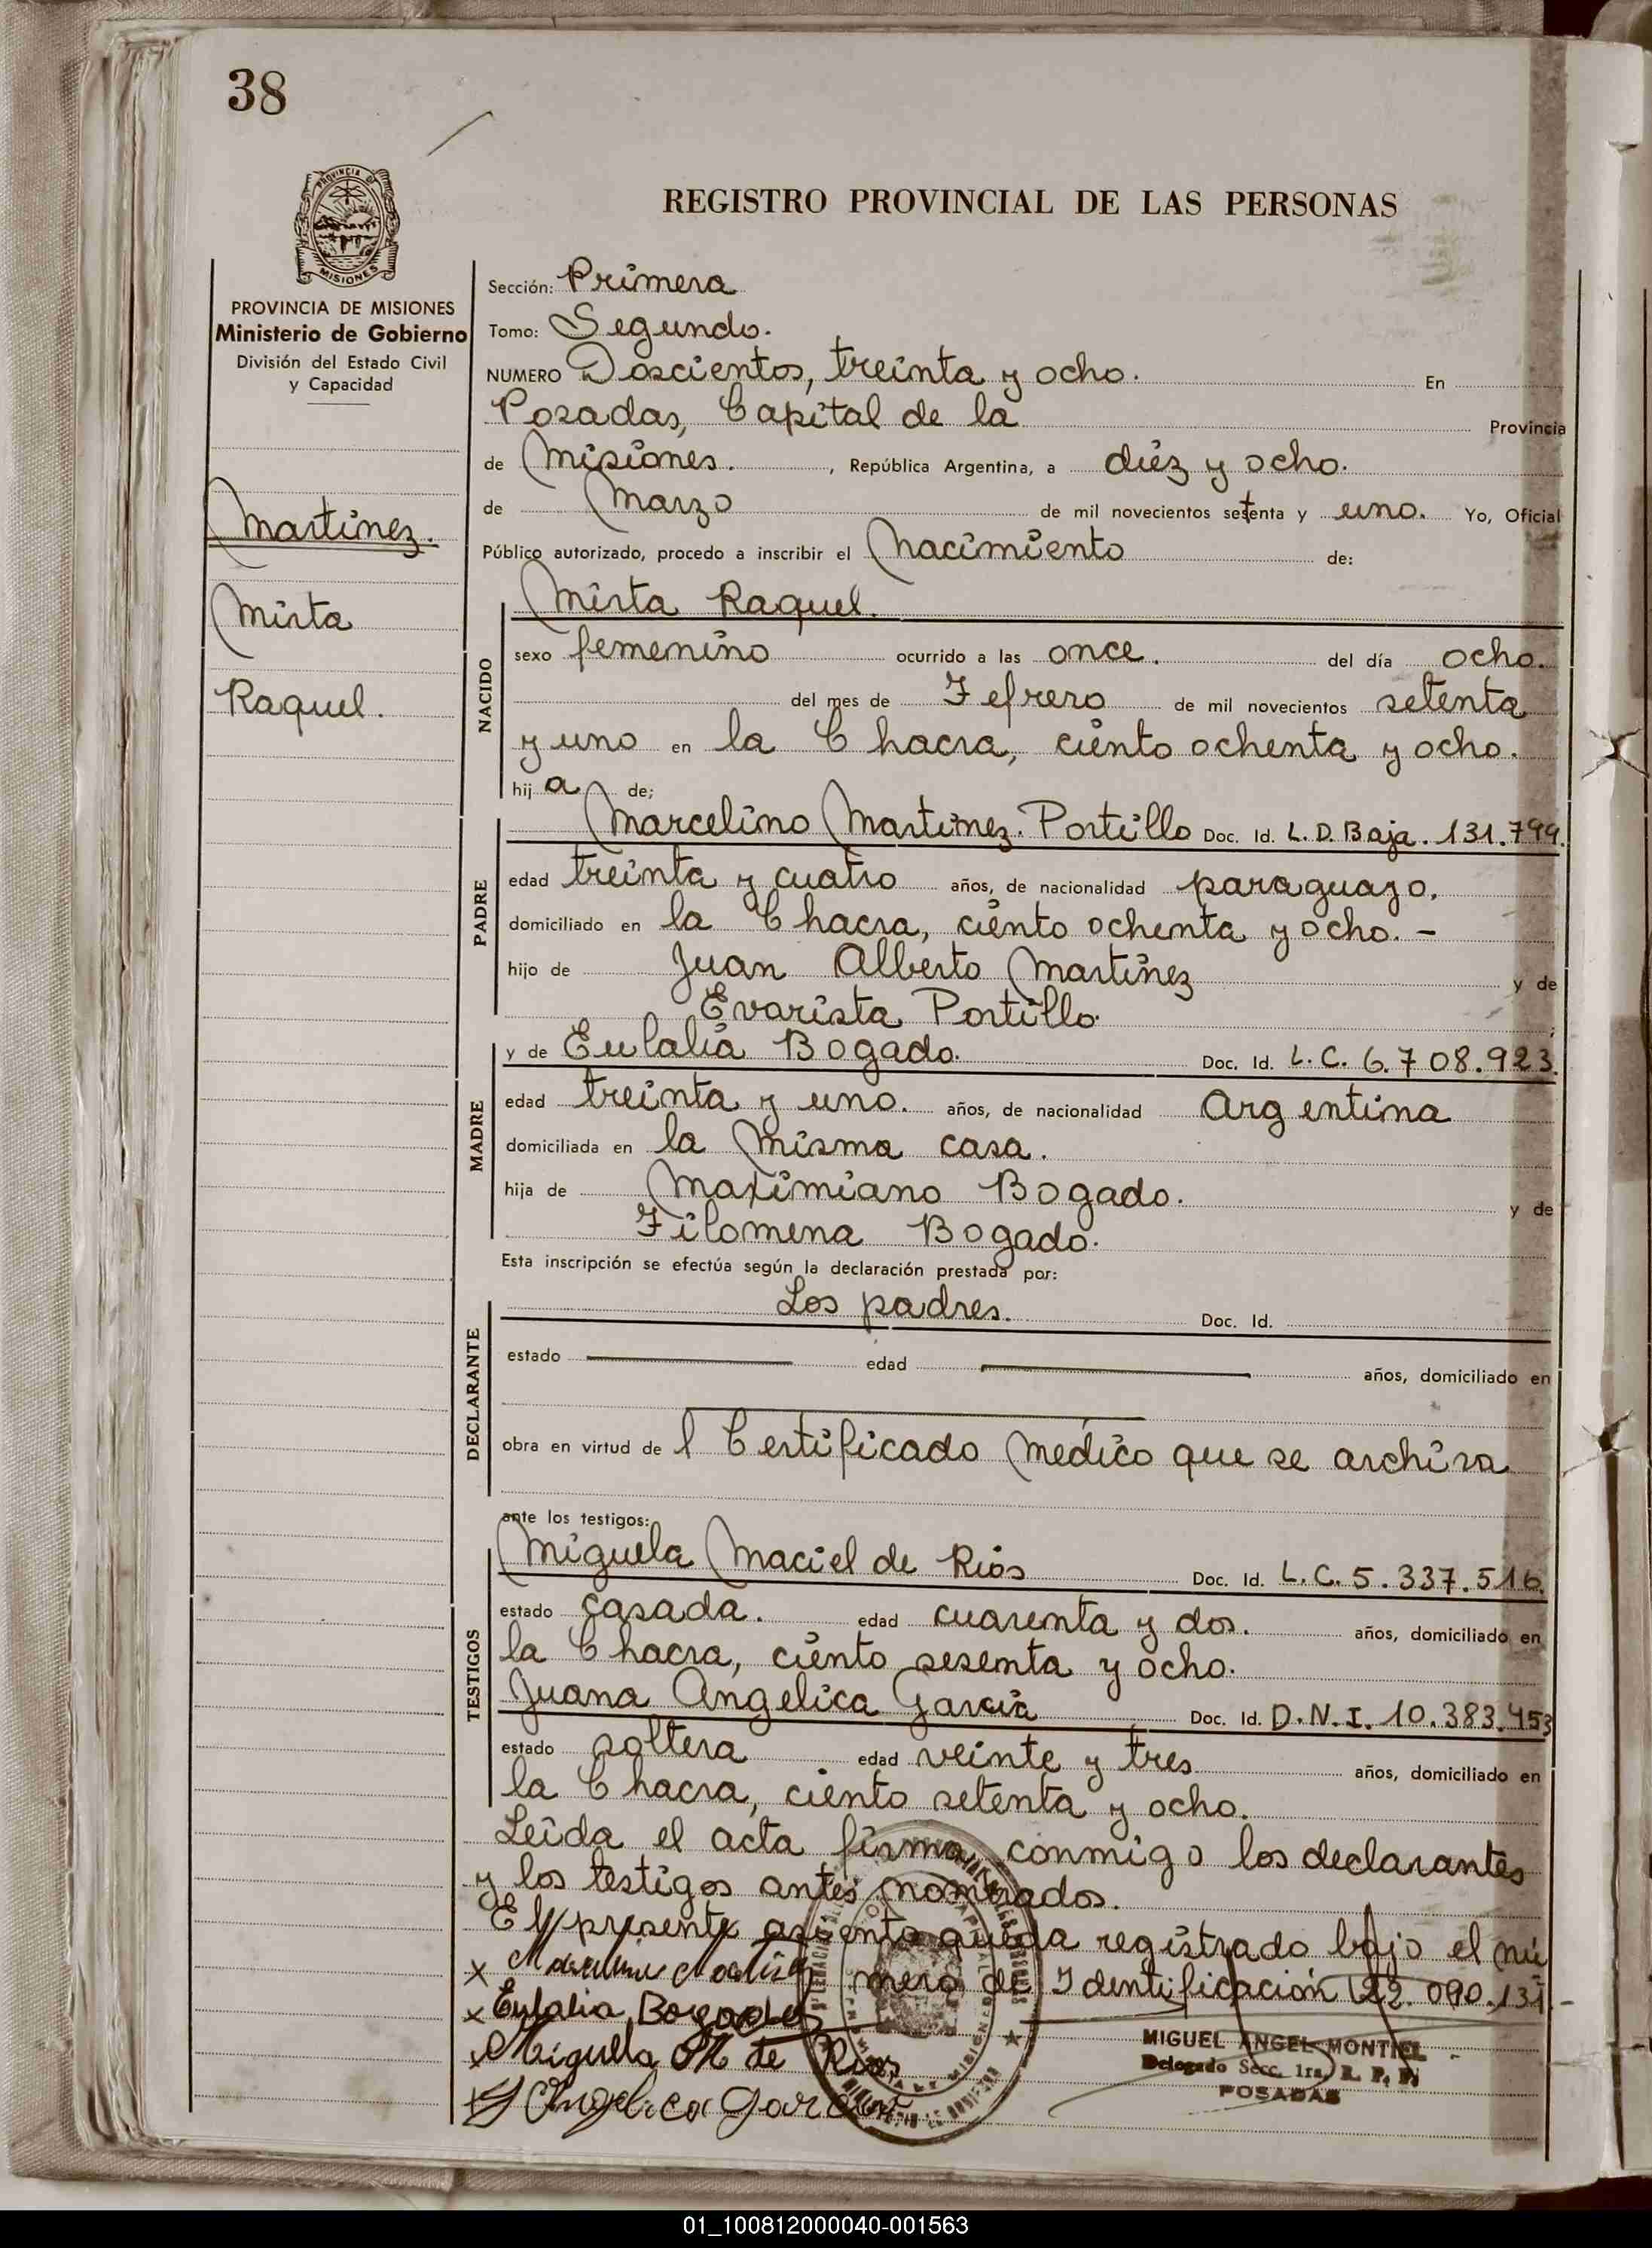 38
REGISTRO PROVINCIAL DE LAS PERSONAS
PROVINCIA DE
MISIONES
PROVINCIA DE MISIONES
Ministerio de Gobierno
División del Estado Civil
y Capacidad
Martinez.
Mirta
Raquel.
Sección: Primera
Tomo: Segundo.
NUMERO Doscientos, treinta y ocho. En
Posadas, Capital de la Provincia
de Misiones. , República Argentina, a diéz y ocho.
de Marzo de mil novecientos setenta y uno. Yo, Oficial
Público autorizado, procedo a inscribir el Nacimiento de:
NACIDO
Mirta Raquel.
sexo femenino ocurrido a las once. del día ocho.
del mes de Febrero de mil novecientos setenta
y uno en la Chacra, ciento ochenta y ocho.
hij a de;
PADRE
Marcelino Martinez. Portillo Doc. Id. L. D. Baja. 131.799.
edad treinta y cuatro años, de nacionalidad paraguayo.
domiciliado en la Chacra, ciento ochenta y ocho. -
hijo de Juan Alberto Martinez y de
Evarista Portillo.
MADRE
y de Eulalia Bogado. Doc. Id. L. C. 6.708.923.
edad treinta y uno. años, de nacionalidad Argentina
domiciliada en la Misma casa.
hija de Maximiano Bogado. y de
Filomena Bogado.
Esta inscripción se efectúa según la declaración prestada por:
DECLARANTE
Los padres. Doc. Id.
estado edad años, domiciliado en
obra en virtud de l Certificado Medico que se archiva
ante los testigos:
TESTIGOS
Miguela Maciel de Rios Doc. Id. L. C. 5.337.516.
estado casada. edad cuarenta y dos. años, domiciliado en
la Chacra, ciento sesenta y ocho.
Juana Angelica Garcia Doc. Id. D. N. I. 10.383.453
estado soltera edad veinte y tres años, domiciliado en
la Chacra, ciento setenta y ocho.
Leida el acta firma conmigo los declarantes
y los testigos antes nombrados.
El presente asiento queda registrado bajo el nú
mero de Identificación 22.090.131.-
x
x Eulalia Bogado
x Miguela M de Rios
x J Angelica Garcia
MIGUEL ANGEL MONTIEL
Delegado Secc. 1ra. R. P. P.
POSADAS
01_100812000040-001563